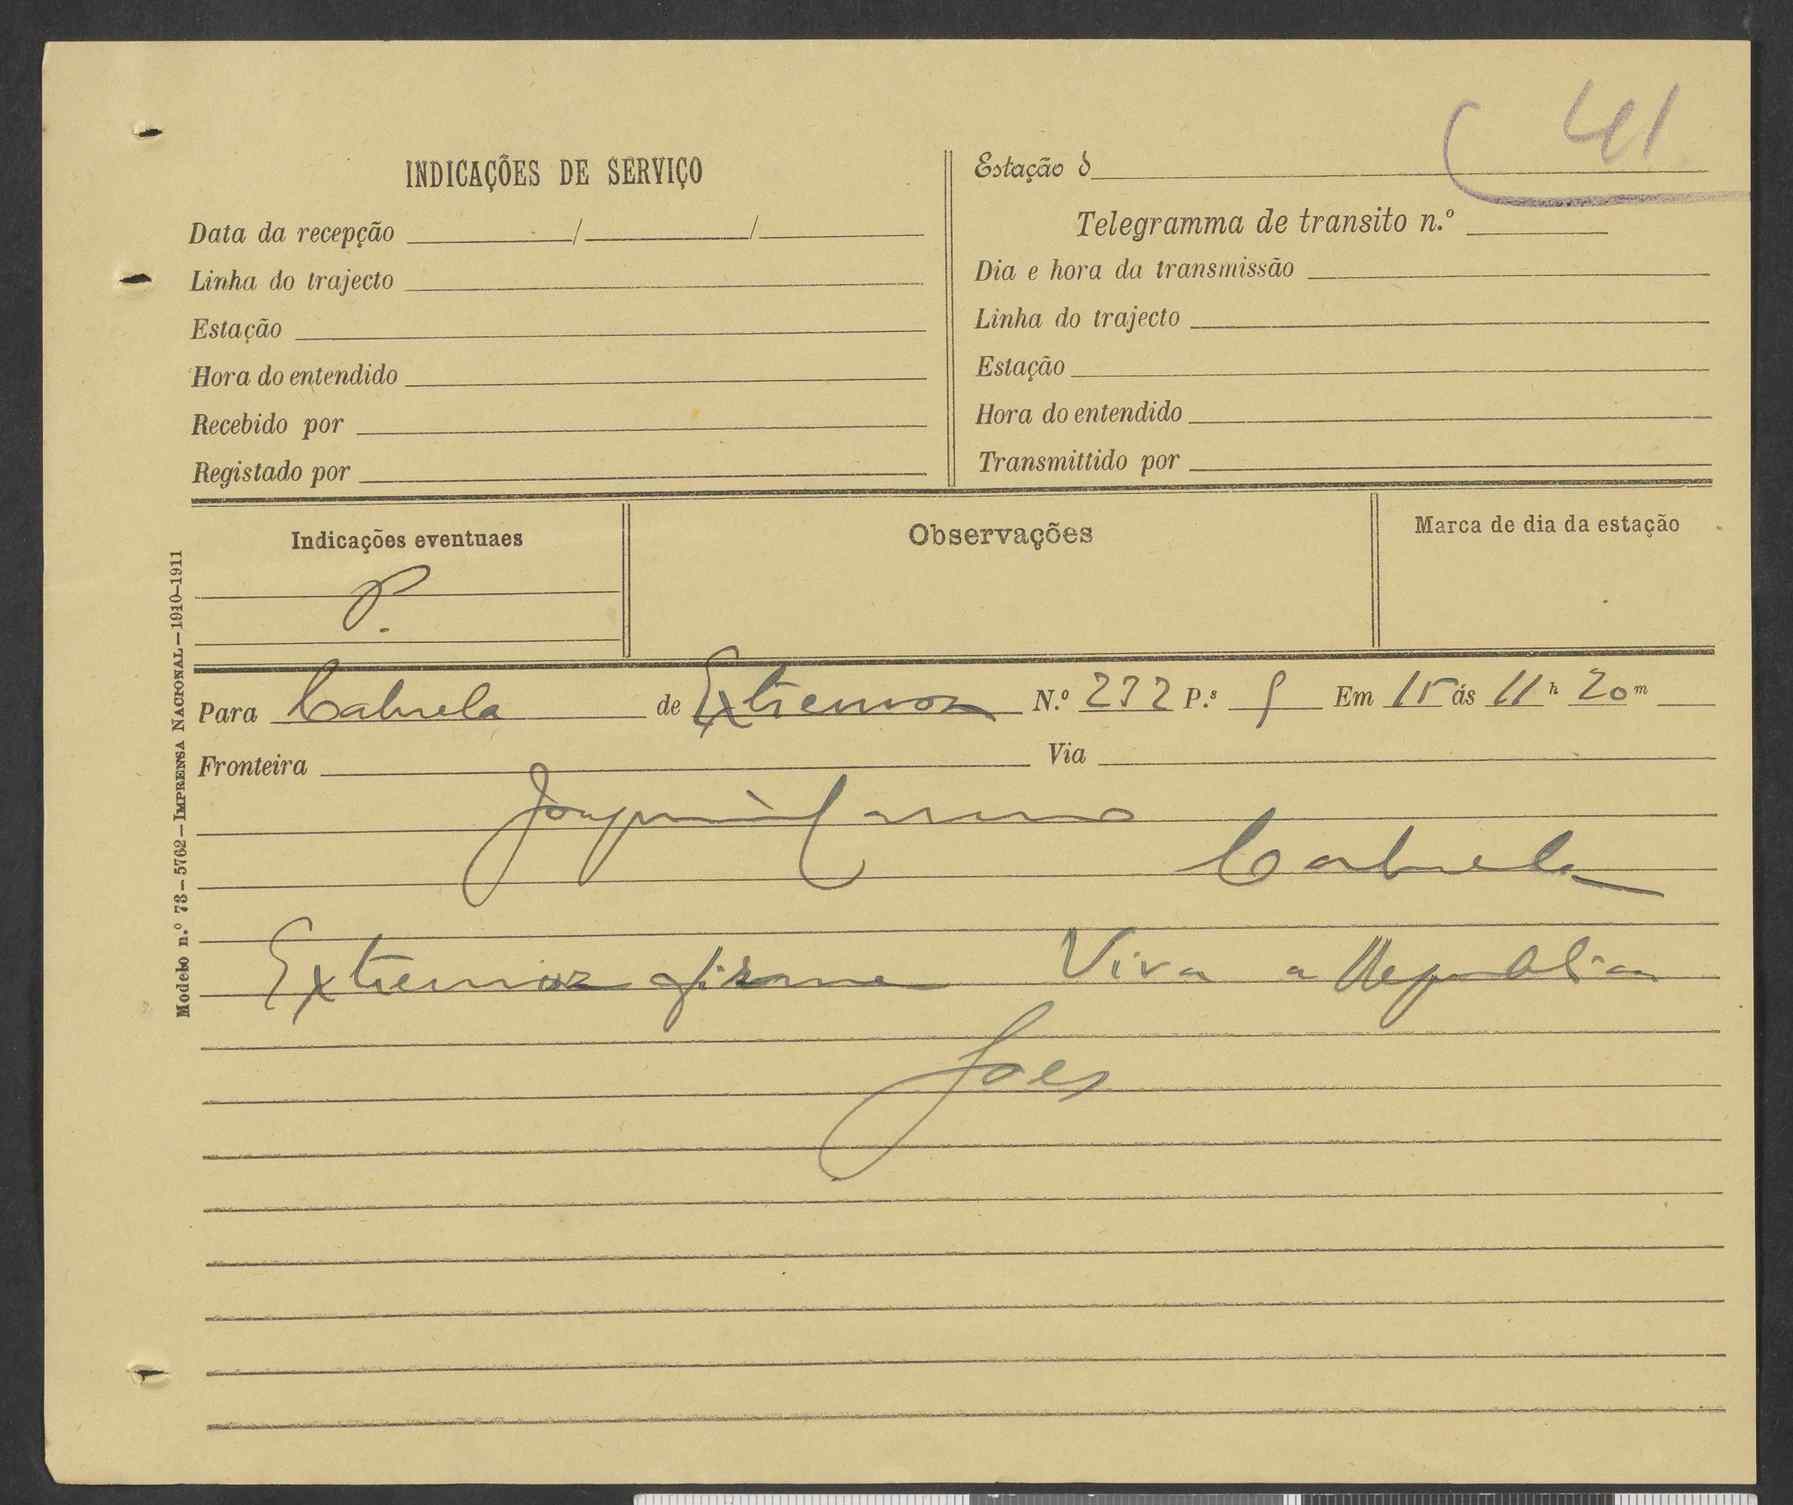 41
INDICAÇÕES DE SERVIÇO
Data da recepção / /
Linha do trajecto
Estação
Hora do entendido
Recebido por
Registado por
Estação d
Telegramma de transito n.º
Dia e hora da transmissão
Linha do trajecto
Estação
Hora do entendido
Transmittido por
Indicações eventuaes
P.
Observações
Marca de dia da estação
Modelo n.º 73–5762–IMPRENSA NACIONAL–1910–1911
Para Cabrela de Extremoz N.º 232 P.s 9 Em 15 ás 11 h 20 m
Fronteira Via
Joaquim
Cabrela
Extremoz firme Viva a Republica